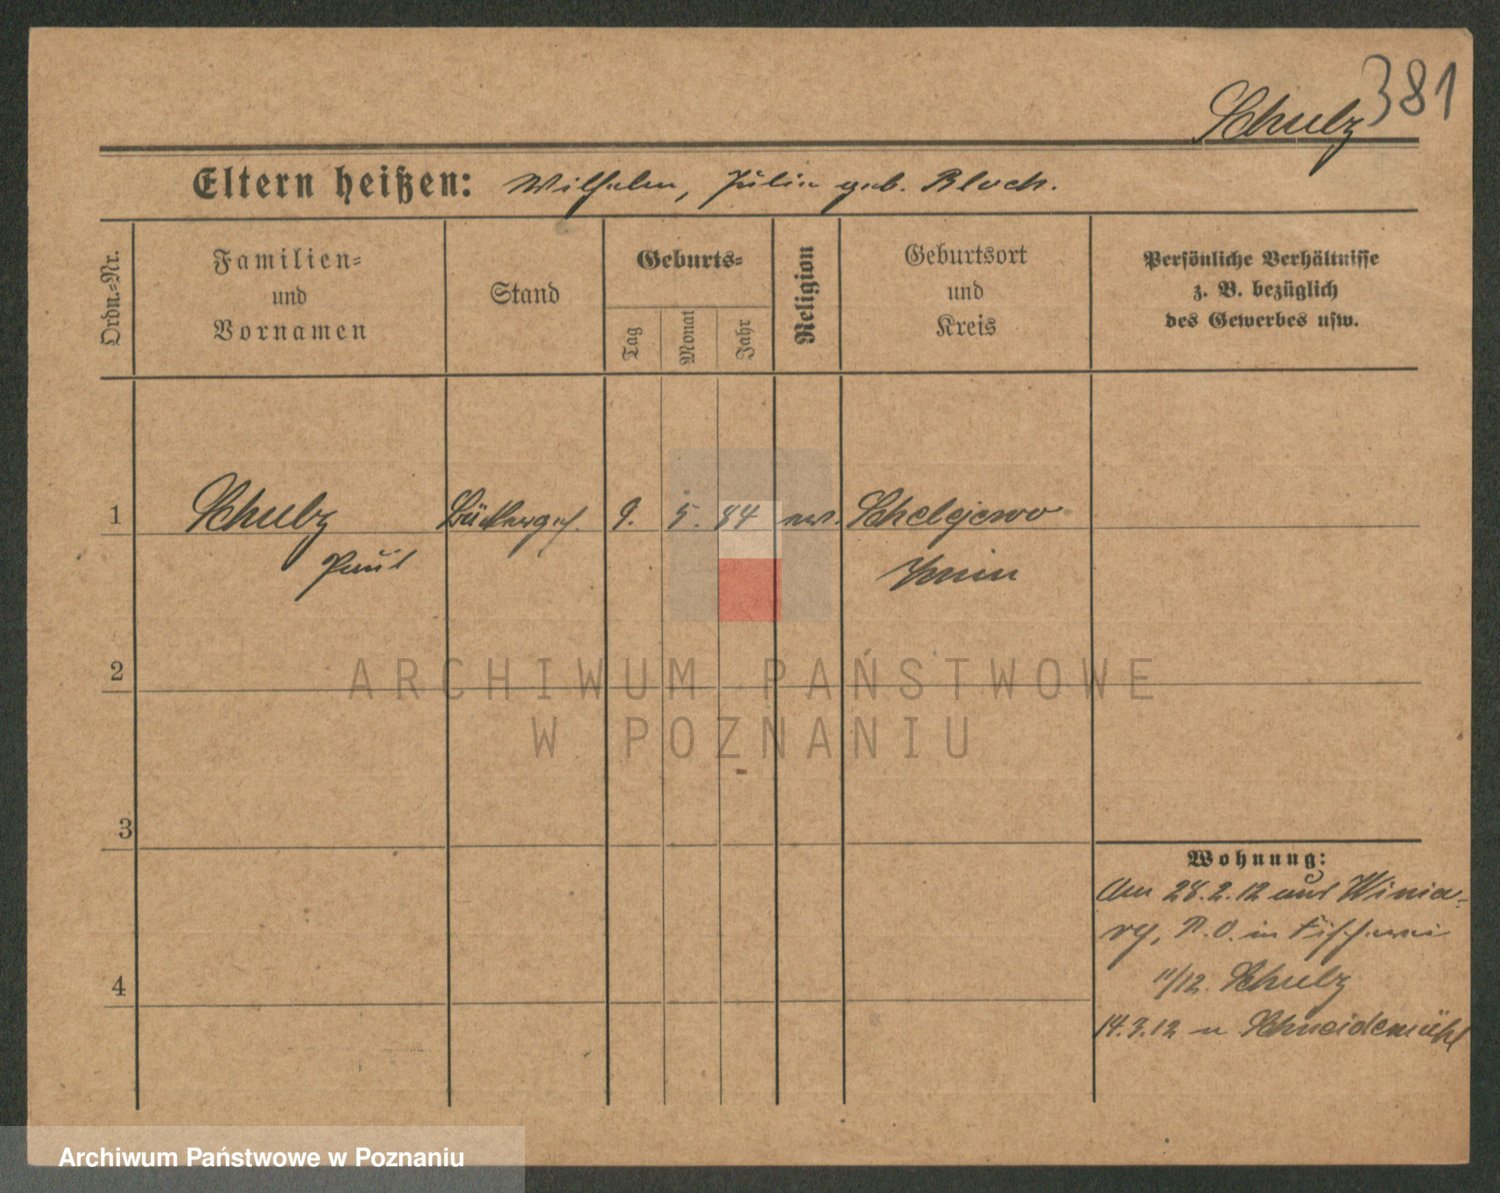 381
Schulz
Eltern heißen: Wilhelm, Julie geb. Bloch.
Ordn.-Nr.
Familien- und Vornamen
Stand
Geburts-
Tag
Monat
Jahr
Religion
Geburtsort und Kreis
Persönliche Verhältnisse
z. B. bezüglich
des Gewerbes usw.
1 Schulz Bäckerges. 9. 5. 84 ev. Schelejewo
Paul Znin
2
ARCHIWUM PAŃSTWOWE
W POZNANIU
3
Wohnung:
Am 28.2.12 aus Winia-
ry, P. O. in Fischerei
11/12. Schulz
14.3.12 n Schneidemühl
4
Archiwum Państwowe w Poznaniu